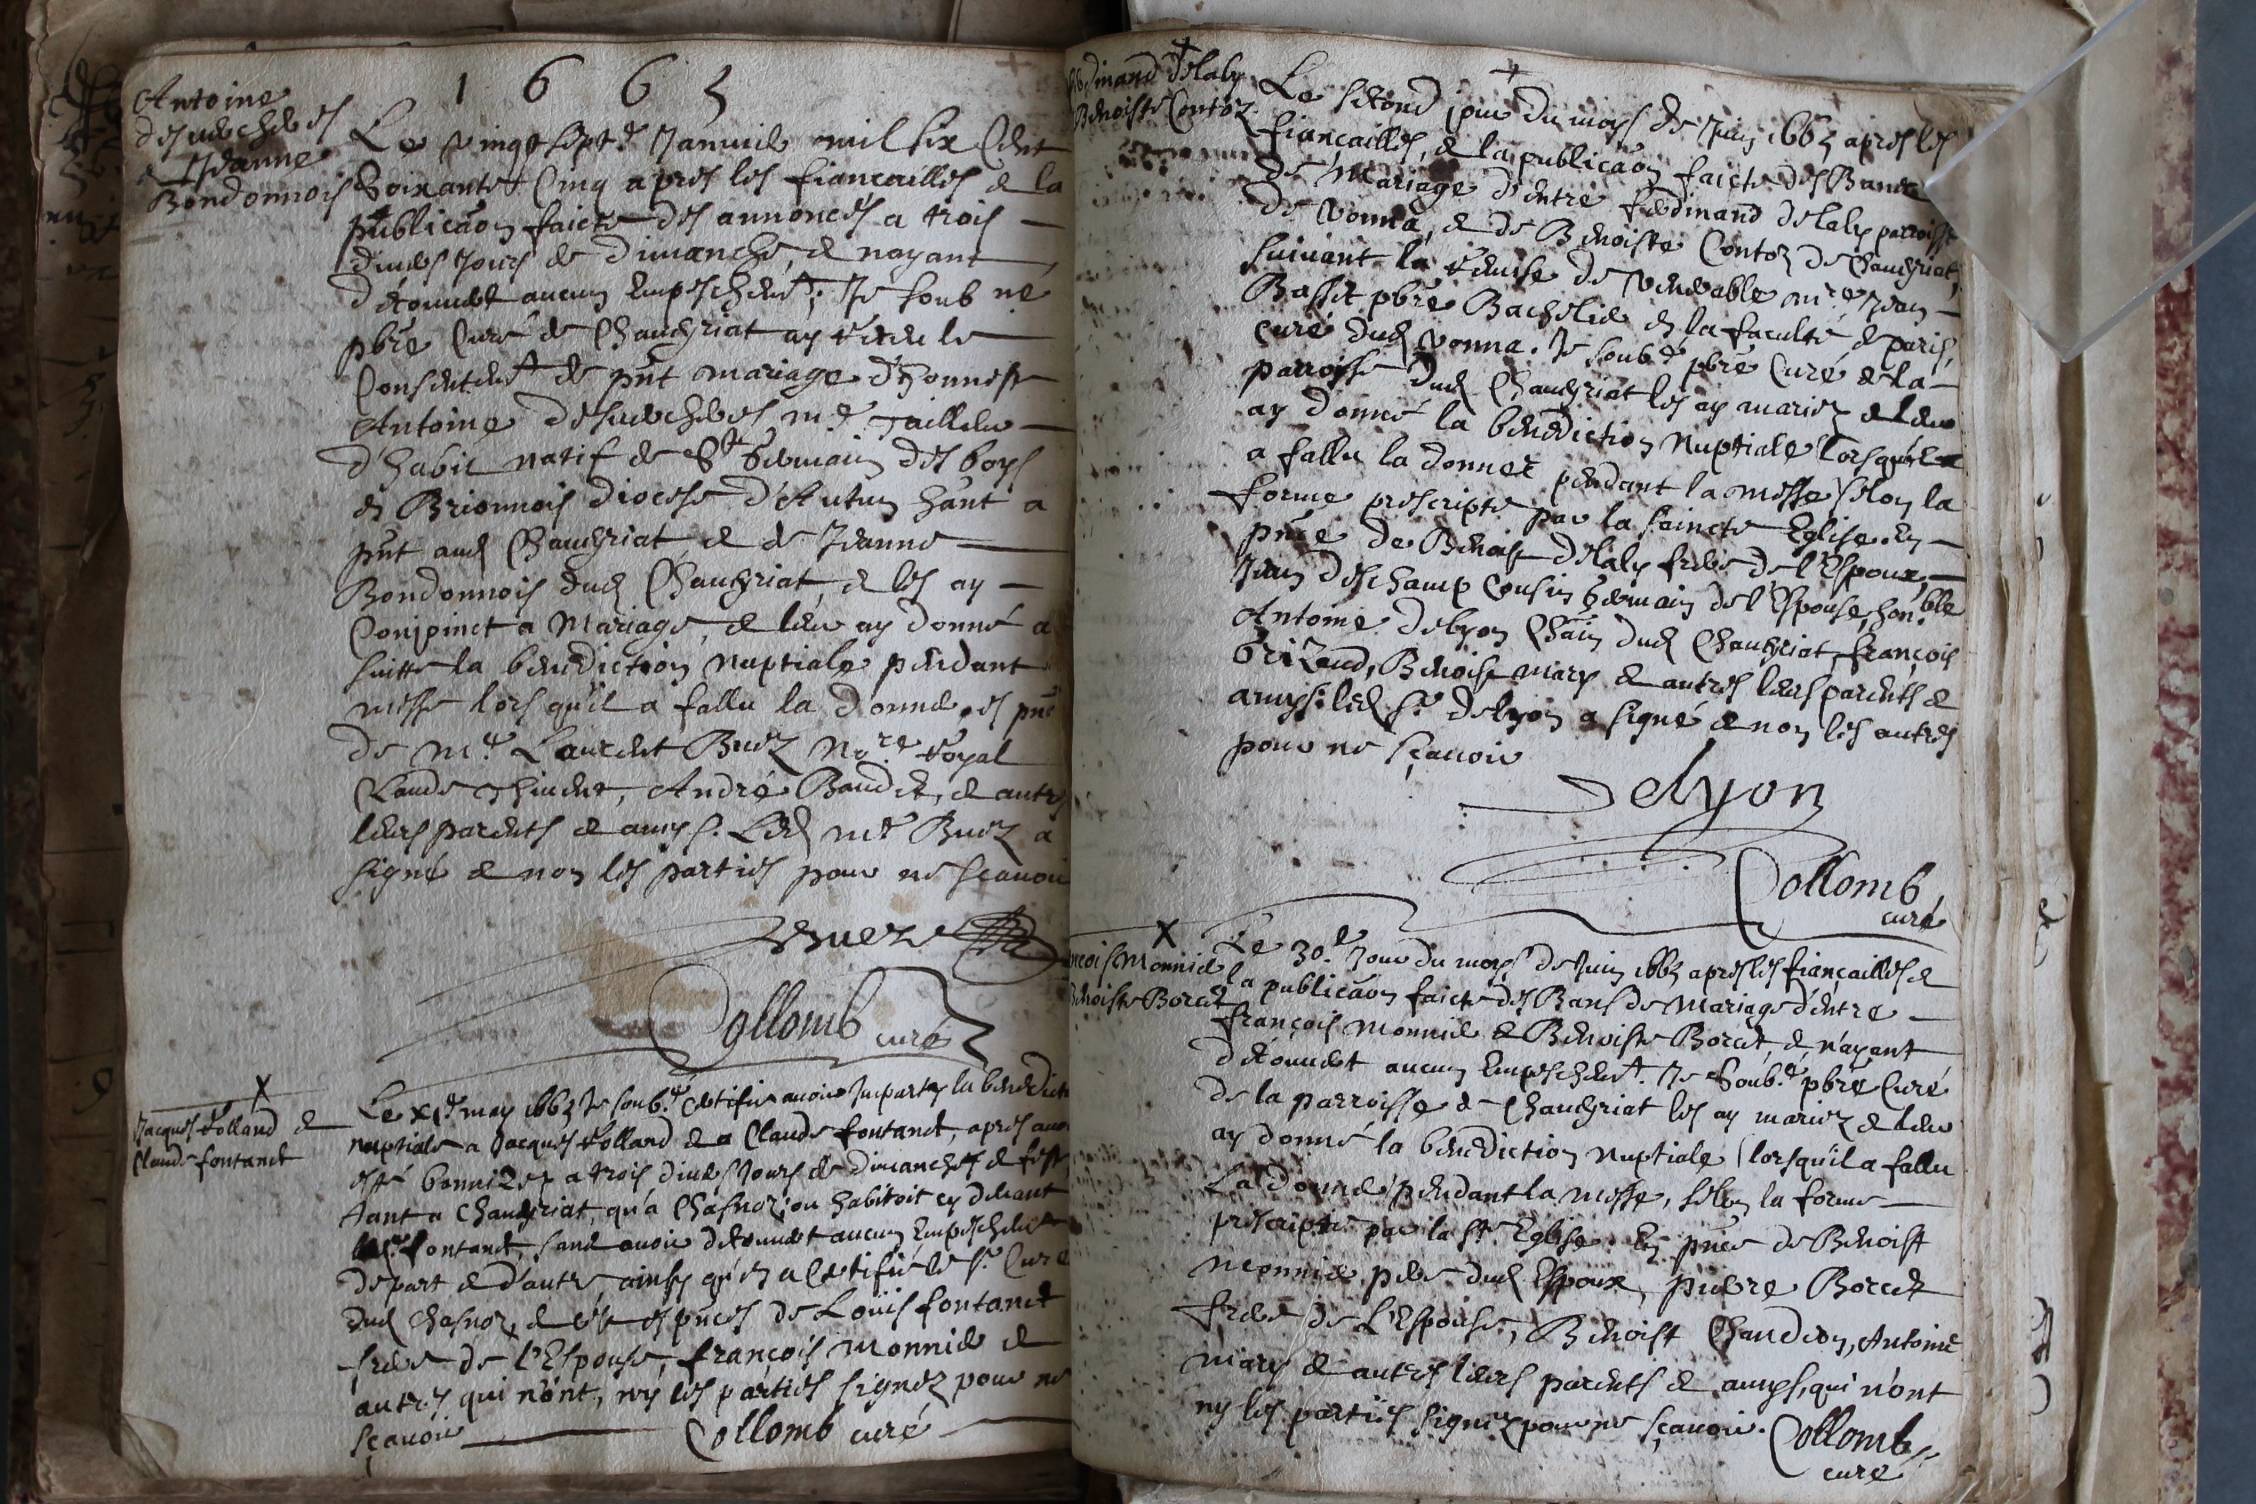 1665
Antoine
desuercheres
& Jeanne
Bondonnois
Le vingt sept.e Janvier mil six cent
Soixante & Cinq apres les fiancailles & la
publicaôn faicte des annonces a trois
divers jours de dimanche, & nayant
decouuert aucun Empeschem.t. Je soub né
pbre Curé de Chaueyriat ay receu le
Consentem.t de pnt mariage d'honneste
Antoine desuercheres m.e Tailleur
d'habit natif de S.t Germain des boys
en Brionnois diocese d'Autun hânt a
pnt aud Chaueyriat & de Jeanne
Bondonnois dud Chaueyriat, & les ay
Conjoinct a Mariage, & leur ay donné a
suitte la benediction nuptiale pendant
messe lors qu'il a fallu la donner. es pnce
de M.e Laurent Buez No.re Royal
Claude Thivent, André Baudet, & autres
leurs parents & amys. Led M.e Buez a
signé & non les parties pour ne scauoir
Buez
Collomb curé
Jacques Rolland &
Claude fontanet
Le xi.e may 1665 Je soub.é Certifie auoir Imparty la benedict
nuptiale a Jacques Rolland & a Claude fontanet, apres auoir
esté bannizez a trois divers Jours de dimanches & feste
tant a Chaueyriat, qu'a Chasnoz, ou habitoit cy deuant
fontanet, sans auoir decouuert aucun Empeschem.t
de part & d'autre, ainsy qu'en a Certifié le S.r Curé
dud Chasnoz, & ce es pnces de Loüis fontanet
frere de l'Espouse, françois Monnier &
autres qui n'ont, ny les parties signez pour ne
scauoir Collomb curé
ferdinand delaly
Benoiste Contoz
Le second jour du moys de Juin 1665 apres les
fiancailles, & la publicaôn faicte des Bancs
de Mariage d'entre ferdinand delaly parroisse
de Vonna, & de Benoiste Contoz de Chaueyriat,
suiuant la remise de Venerable m.re Jean
Basset pbre Bachelier en la faculté de paris,
curé dud Vonna. Je soub.é pbre Curé de la
parroisse dud Chaueyriat les ay mariez & leur
ay donné la benediction nuptiale lors qu'il
a fallu la donner pendant la messe selon la
forme prescripte par la saincte Eglise. En
pnce de Benoist delaly frere de l'Espoux,
Jean deschamp Cousin germain de l'Espouse, hon.ble
Antoine delyon Châin dud Chaueyriat, françois
Brizaud, Benoist mary & autres leurs parents &
amys. led S.r delyon a signé & non les autres
pour ne scauoir
Delyon
Collomb
curé
françois Monnier
Benoiste Borcet
Le 30.e Jour du moys de Juin 1665 apres les fiançailles &
la publicaôn faicte des Bans de Mariage d'entre
françois Monnier & Benoiste Borcet, & n'ayant
decouuert aucun Empeschem.t. Je soub.é pbre Curé
de la parroisse de Chaueyriat les ay mariez & leur
ay donné la benediction nuptiale (lorsqu'il a fallu
La donner) pendant la messe, selon la forme
prescripte par la S.te Eglise. En pnce de Benoist
Monnier pere dud Espoux, pierre Borcet
frere de L'Espouse, Benoist Chaudion, Antoine
Mary & autres leurs parents & amys, qui n'ont
ny les parties signez pour ne scauoir. Collomb
curé